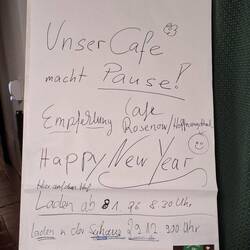 Unser Cafe
macht Pause!
Empfehlung Cafe
Rosenow/
Happy New Year
Laden ab 8 1 96 8.30 Uhr
Laden in der Scheune 29 12 900 Uhr